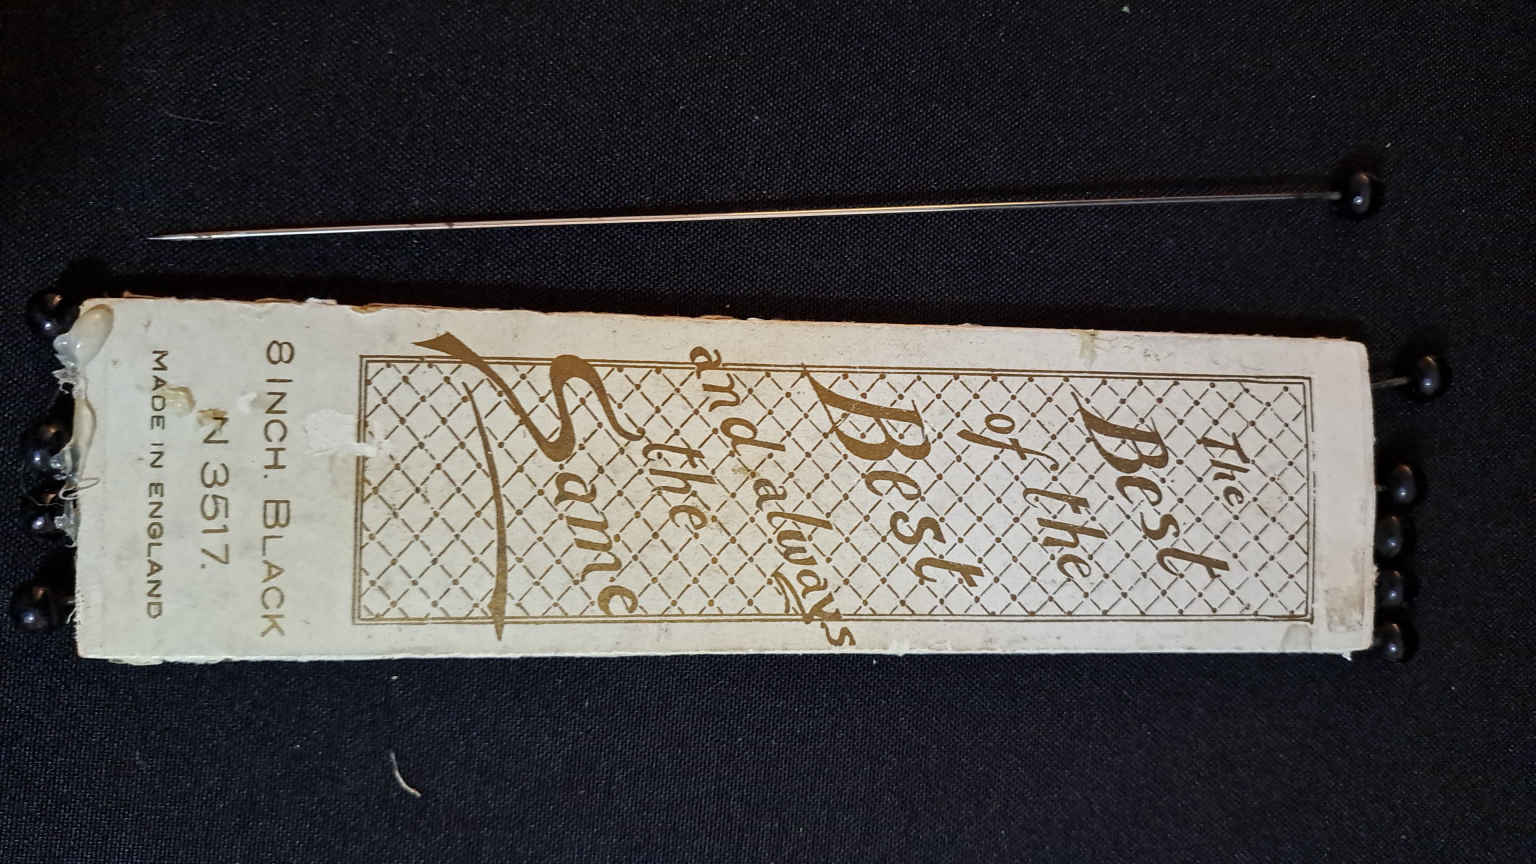 The
Best
of the
Best
and always
the
Same
8 INCH. BLACK
N 3517.
MADE IN ENGLAND